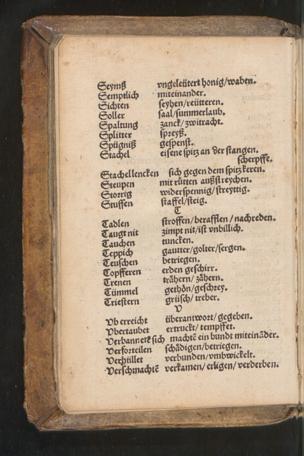 Seymß vngeleütert honig/waben.
Semptlich miteinander.
Sichten seyhen/reütteren.
Soller saal/summerlaub.
Spaltung zanck/zwitracht.
Splitter spreyß.
Spügniß gespenst.
Stachel eisene spitz an der stangen.
scherpffe.
Stachellencken sich gegen dem spitz keren.
Steupen mit růtten außstreychen.
Storrig widerspennig/streyttig.
Stuffen staffel/steig.
T
Tadlen stroffen/berafflen/nachreden.
Taugt nit zimpt nit/ist vnbillich.
Tauchen tuncken.
Teppich gautter/golter/sergen.
Teuschen betriegen.
Töpfferen erden geschirr.
Trenen trähern/zähern.
Tümmel gethön/geschrey.
Triestern grüsch/treber.
V
Vb erreicht überantwort/gegeben.
Vbertaubet ertruckt/tempffet.
Verbannet sich machtẽ ein bundt miteinãder.
Verforteilen schädigen/betriegen.
Verhüllet verbunden/vmbwickelt.
Verschmachtẽ verkamen/erligen/verderben.